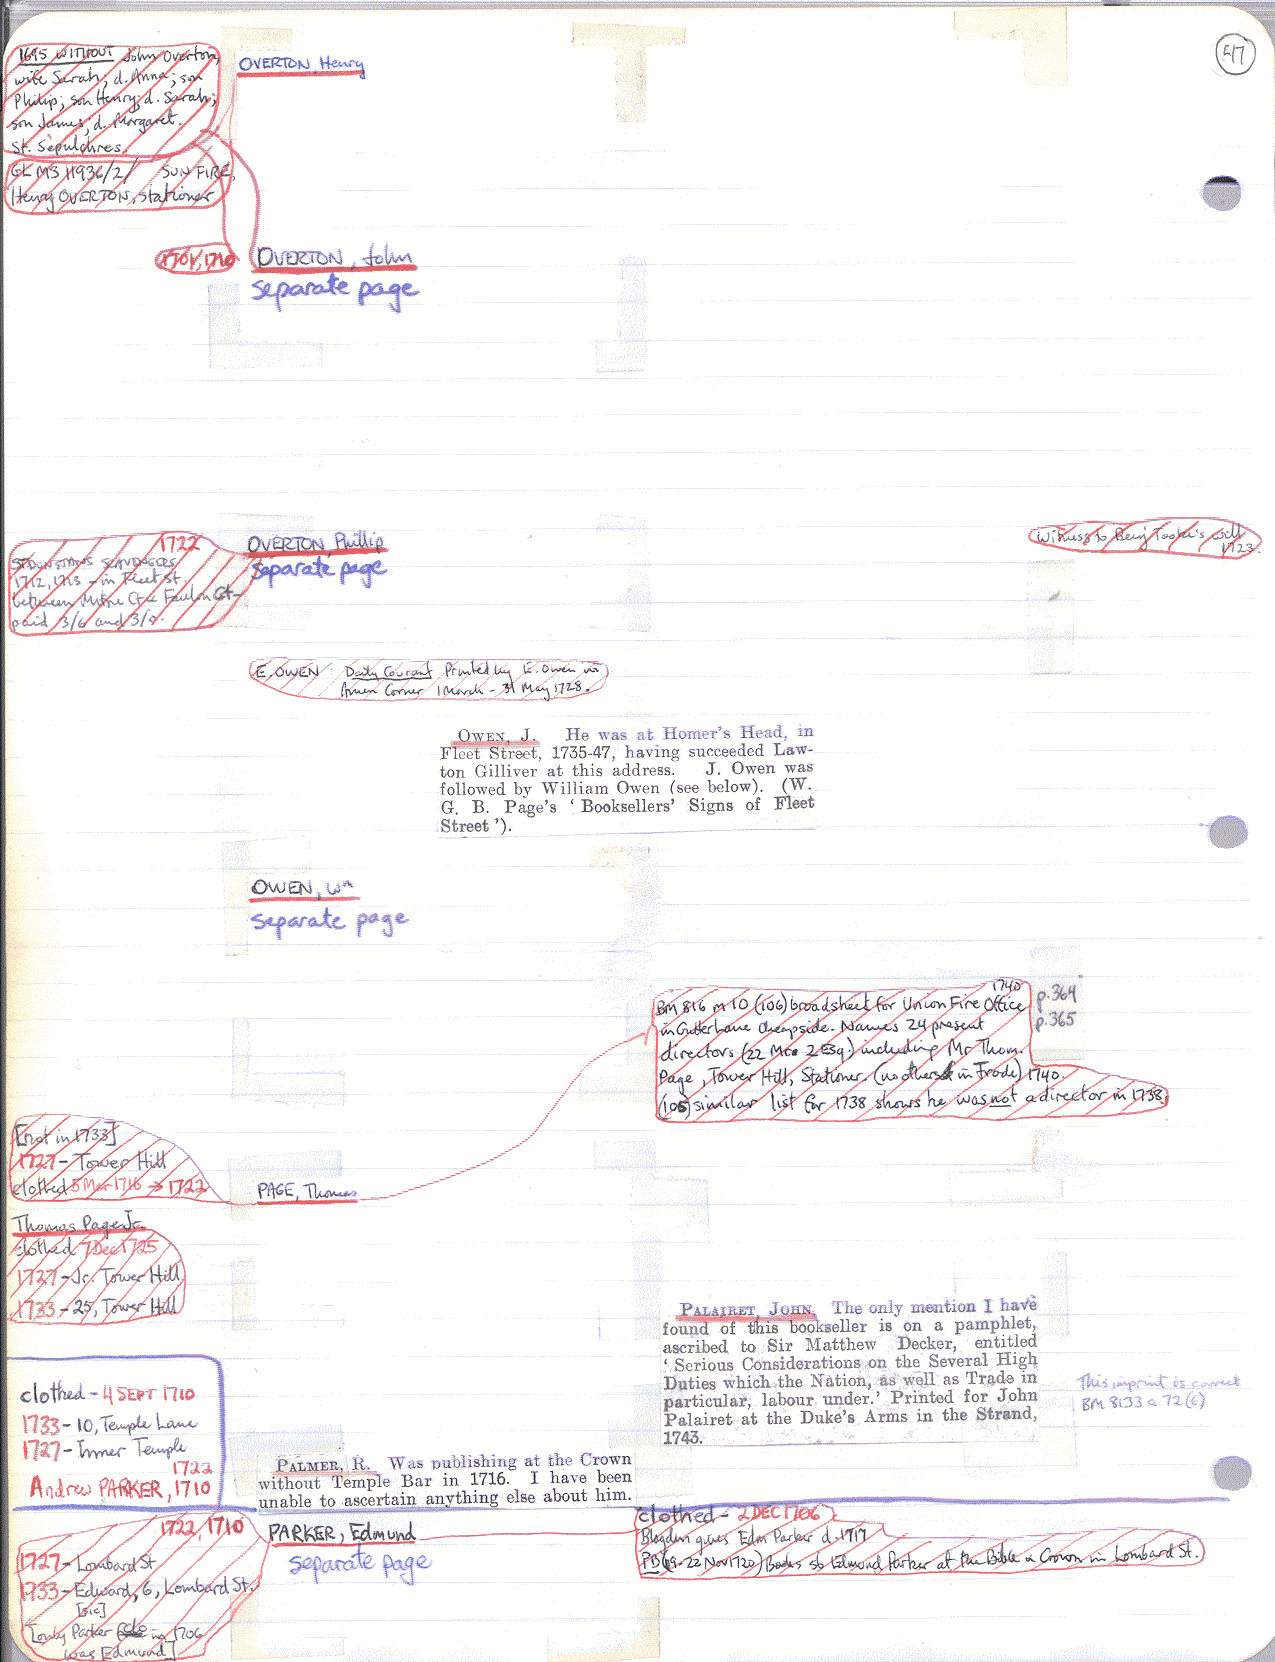 1695 WITHOUT John Overton,
wife Sarah, d. Anna; son
Philip; son Henry; d. Sarah;
son James; d. Margaret.
St. Sepulchres.
GL MS 11936/2/ SUN FIRE,
Henry OVERTON, stationer
OVERTON, Henry
517
1701, 1710
OVERTON, John
separate page
1722
ST DUNSTANS SCAVENGERS
1712, 1713 - in Fleet St.
between Mitre Ct & Faulcon Ct -
paid 3/6 and 3/9.
OVERTON, Phillip
separate page
Witness to Benj Tooke's will
1723.
E. OWEN Daily Courant Printed by E. Owen in
Amen Corner 1 March - 31 May 1728.
OWEN, J. He was at Homer's Head, in
Fleet Street, 1735-47, having succeeded Law-
ton Gilliver at this address. J. Owen was
followed by William Owen (see below). (W.
G. B. Page's 'Booksellers' Signs of Fleet
Street').
OWEN, Wm
separate page
1740
BM 816 m 10 (106) broadsheet for Union Fire Office
in Gutter Lane Cheapside. Names 24 present
directors (22 Mr & 2 Esq.) including Mr Thom.
Page, Tower Hill, Stationer. (no others in Trade) 1740.
(105) similar list for 1738 shows he was not a director in 1738.
p.364
p.365
[not in 1733]
1727 - Tower Hill
clothed 5 Mar 1716 → 1722
PAGE, Thomas
Thomas Page Jr.
clothed 7 Dec 1725
1727 - Jr. Tower Hill
1733 - 25, Tower Hill
PALAIRET, JOHN. The only mention I have
found of this bookseller is on a pamphlet,
ascribed to Sir Matthew Decker, entitled
'Serious Considerations on the Several High
Duties which the Nation, as well as Trade in
particular, labour under.' Printed for John
Palairet at the Duke's Arms in the Strand,
1743.
This imprint is correct
BM 8133 a 72 (6)
clothed - 4 SEPT 1710
1733 - 10, Temple Lane
1727 - Inner Temple
1722
Andrew PARKER, 1710
PALMER, R. Was publishing at the Crown
without Temple Bar in 1716. I have been
unable to ascertain anything else about him.
1722, 1710
1727 - Lombard St
1733 - Edward, 6, Lombard St.
[sic]
[only Parker in 1706
was Edmund]
PARKER, Edmund
separate page
clothed - 2 DEC 1706
Blagden gives Edm Parker d. 1717
PB (19-22 Nov 1720) Books sb Edmond Parker at the Bible & Crown in Lombard St.